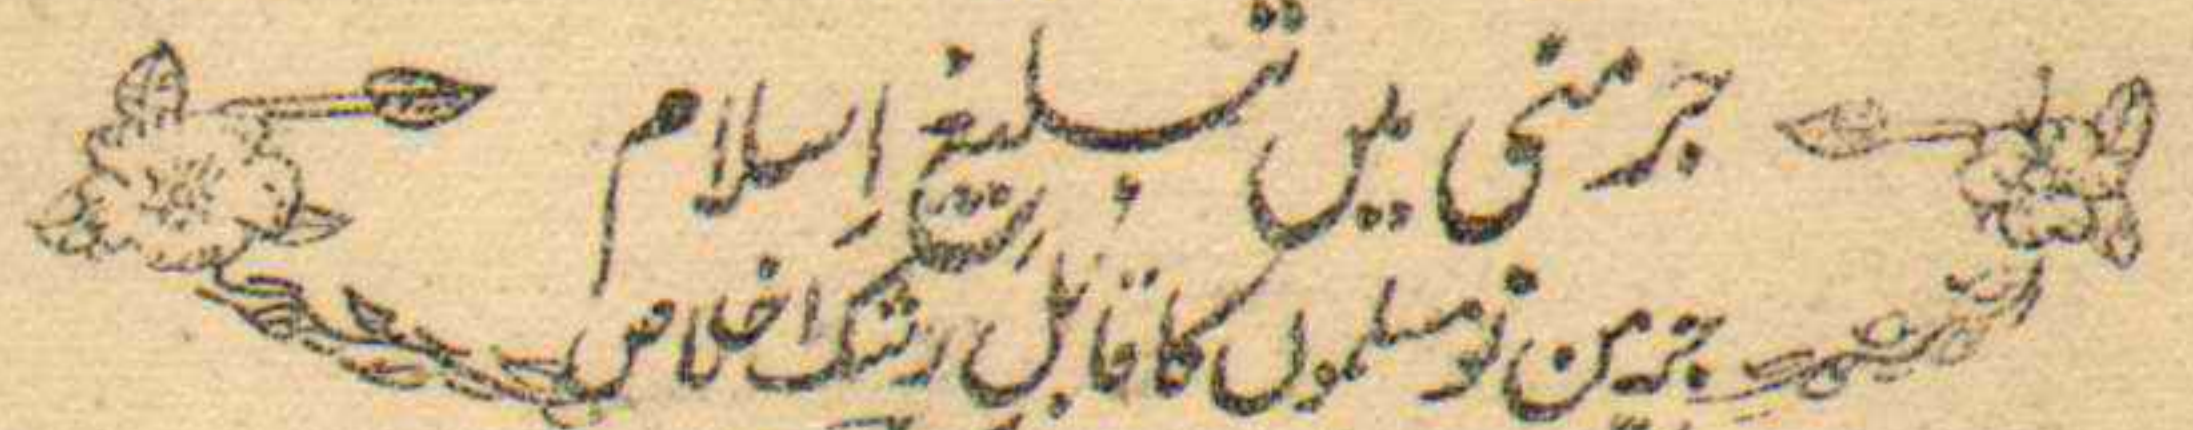 جرمنی میں تبلیغ اِسلام
جرمن نومسلموں کا قابلِ رشک اخلاص